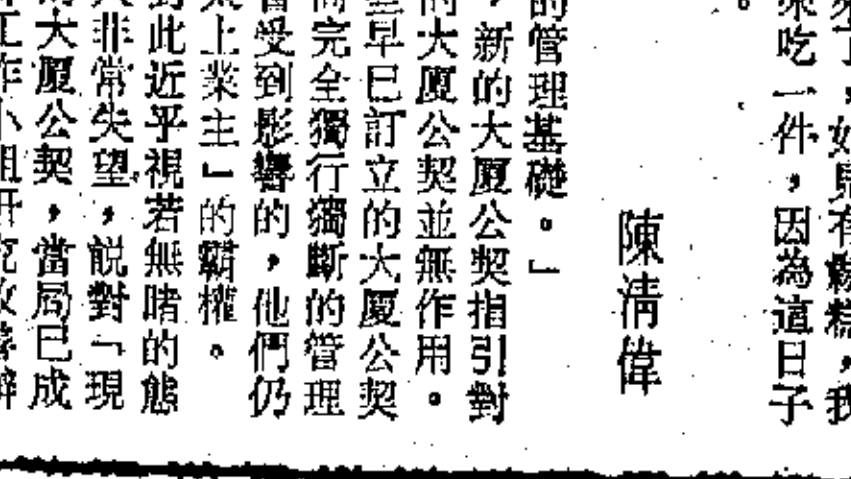 來了，好見有糕，我
來吃一件，因為這日子
。
陳清偉
的管理基礎。」
，新的大廈公契指引對
的大廈公契並無作用。
早已訂立的大廈公契
而完全獨行獨斷的管理
會受到影響的，他們仍
太上業主」的霸權。
對此近乎視若無睹的態
人非常失望，說對「現
的大廈公契，當局已成
工作小組研究改善